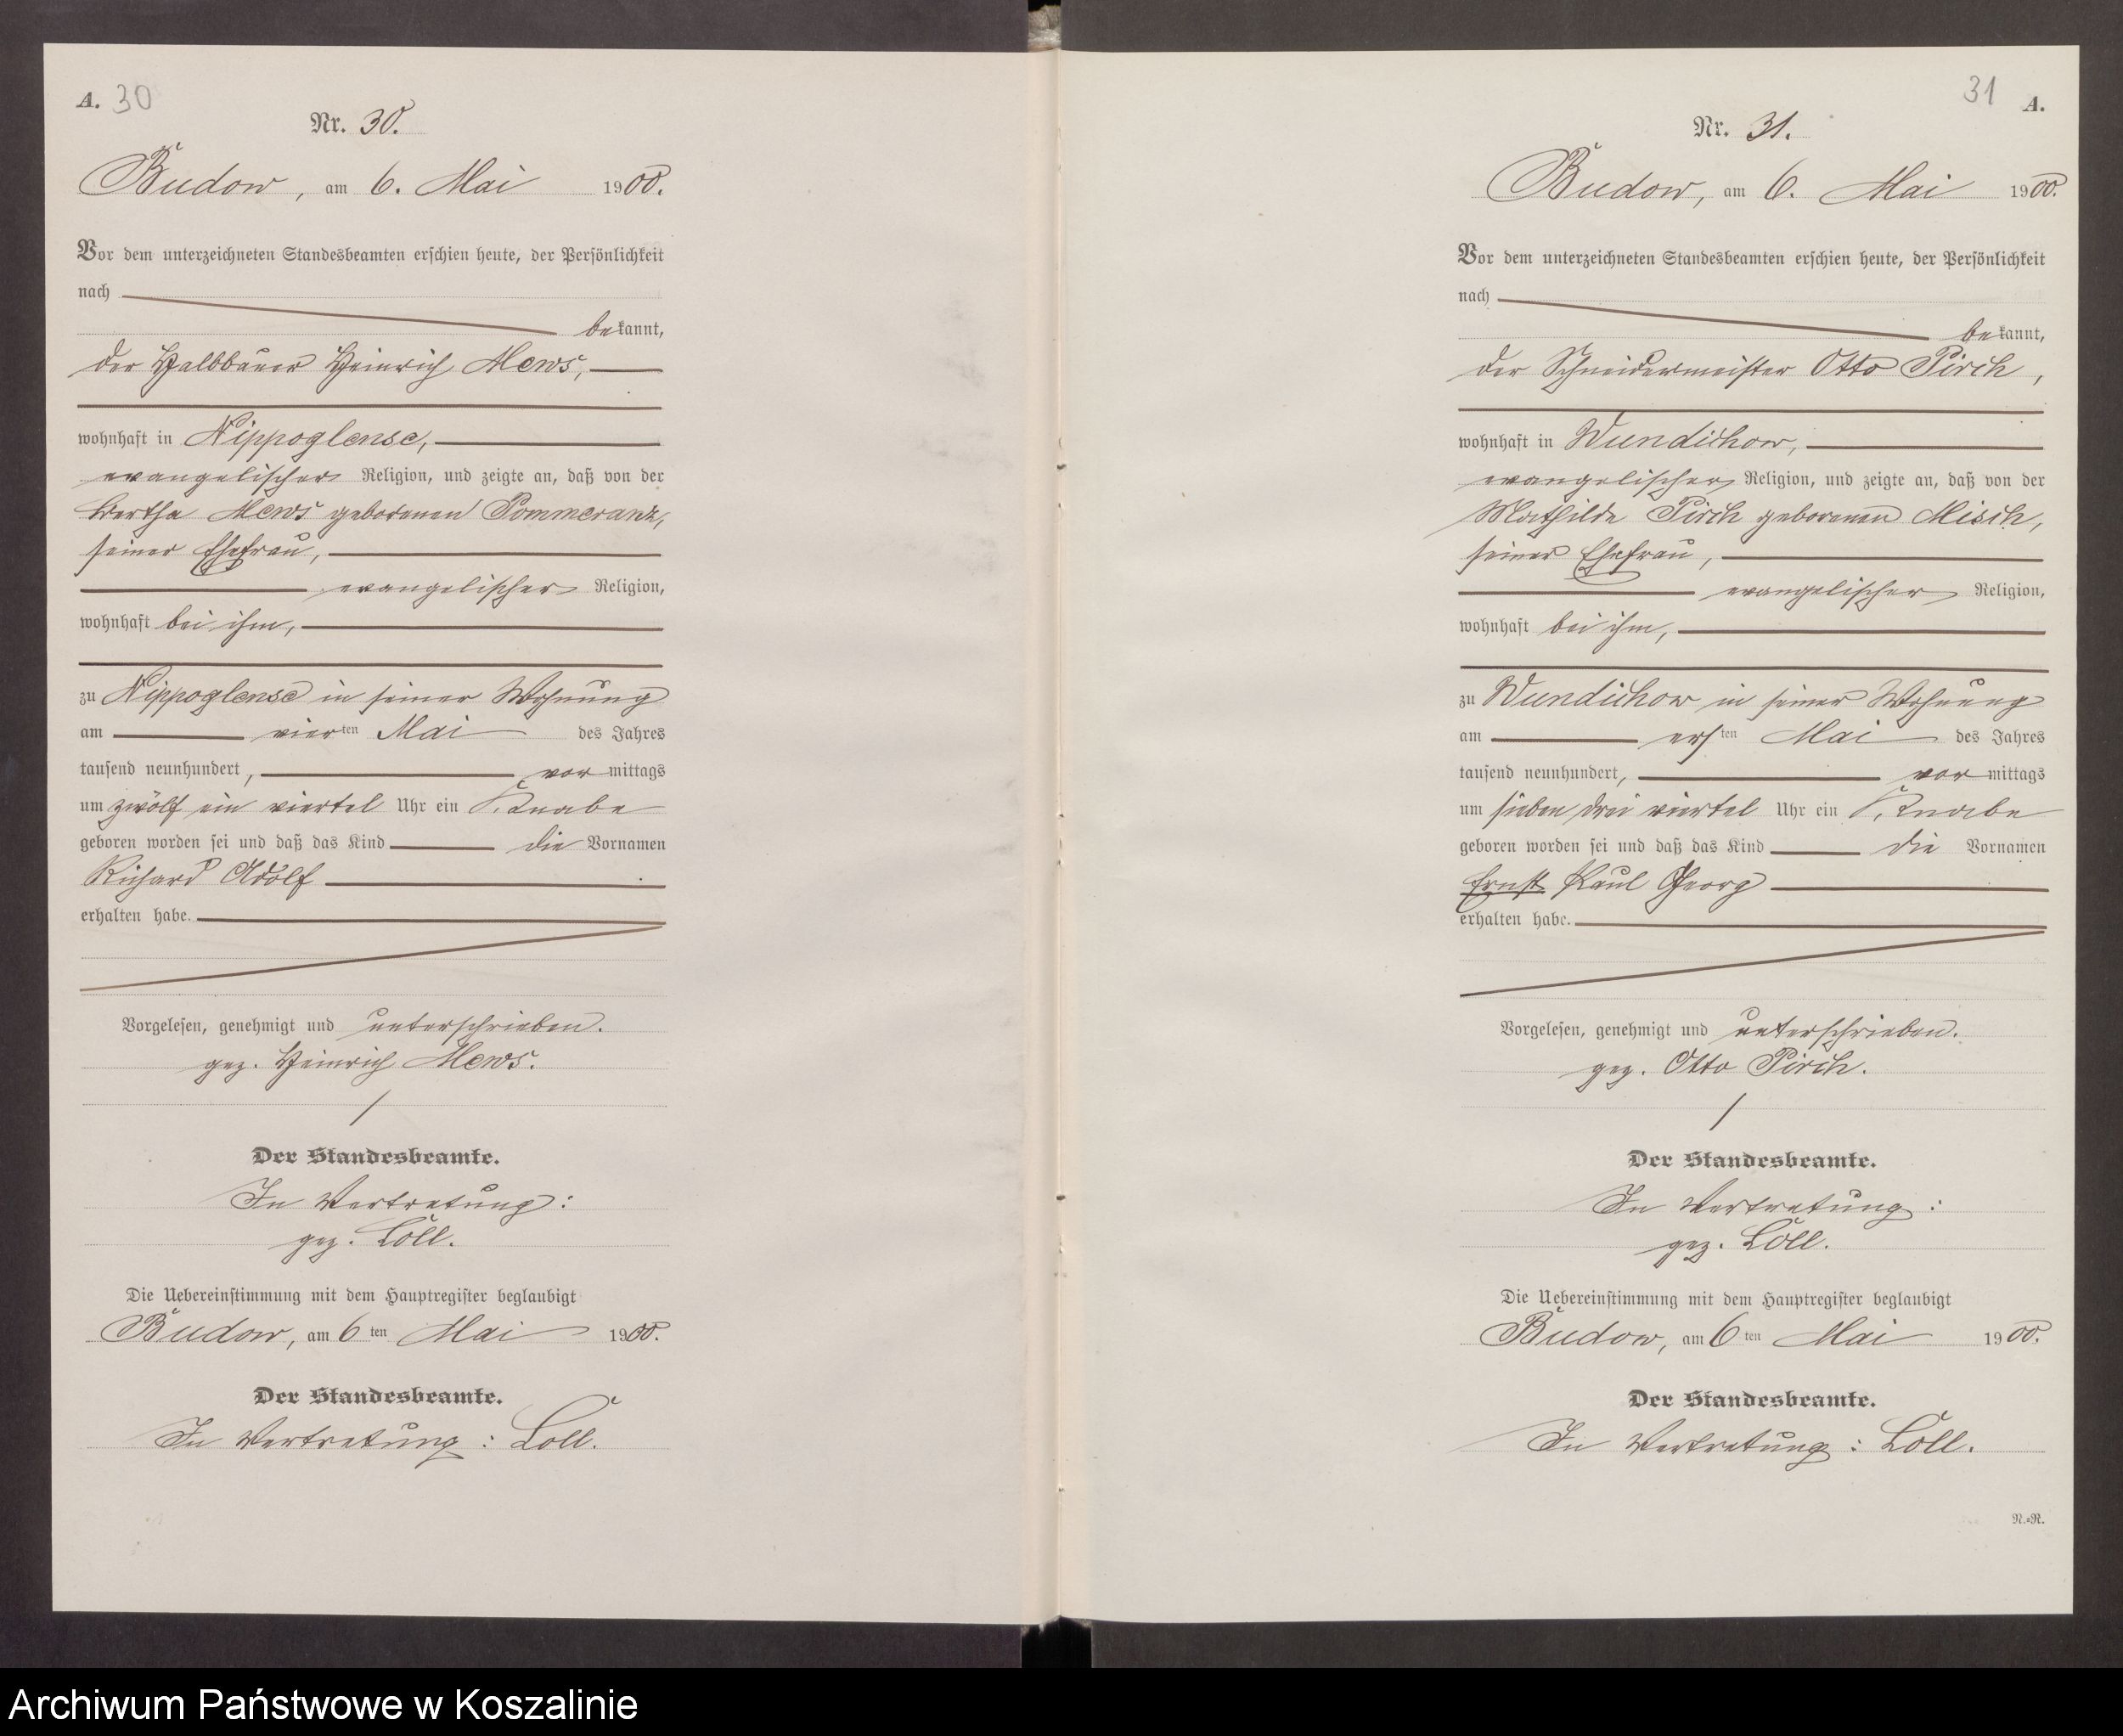 A. 30
Nr. 30.
Budow, am 6. Mai 1900.
Vor dem unterzeichneten Standesbeamten erschien heute, der Persönlichkeit
nach
bekannt,
der Halbbauer Heinrich Mews,
wohnhaft in Nippoglense,
evangelischer Religion, und zeigte an, daß von der
Bertha Mews geborenen Pommeranz,
seiner Ehefrau,
evangelischer Religion,
wohnhaft bei ihm,
zu Nippoglense in seiner Wohnung
am vierten Mai des Jahres
tausend neunhundert, vormittags
um zwölf ein viertel Uhr ein Knabe
geboren worden sei und daß das Kind die Vornamen
Richard Adolf
erhalten habe.
Vorgelesen, genehmigt und unterschrieben.
gez. Heinrich Mews.
Der Standesbeamte.
In Vertretung:
gez. Löll.
Die Uebereinstimmung mit dem Hauptregister beglaubigt
Budow, am 6ten Mai 1900.
Der Standesbeamte.
In Vertretung: Löll.
31 A.
Nr. 31.
Budow, am 6. Mai 1900.
Vor dem unterzeichneten Standesbeamten erschien heute, der Persönlichkeit
nach
bekannt,
der Schneidermeister Otto Pirch,
wohnhaft in Wundichow,
evangelischer Religion, und zeigte an, daß von der
Mathilde Pirch geborenen Misch,
seiner Ehefrau,
evangelischer Religion,
wohnhaft bei ihm,
zu Wundichow in seiner Wohnung
am ersten Mai des Jahres
tausend neunhundert, vormittags
um sieben drei viertel Uhr ein Knabe
geboren worden sei und daß das Kind die Vornamen
Ernst Paul Georg
erhalten habe.
Vorgelesen, genehmigt und unterschrieben.
gez. Otto Pirch.
Der Standesbeamte.
In Vertretung:
gez. Löll.
Die Uebereinstimmung mit dem Hauptregister beglaubigt
Budow, am 6ten Mai 1900.
Der Standesbeamte.
In Vertretung: Löll.
N.=R.
Archiwum Państwowe w Koszalinie